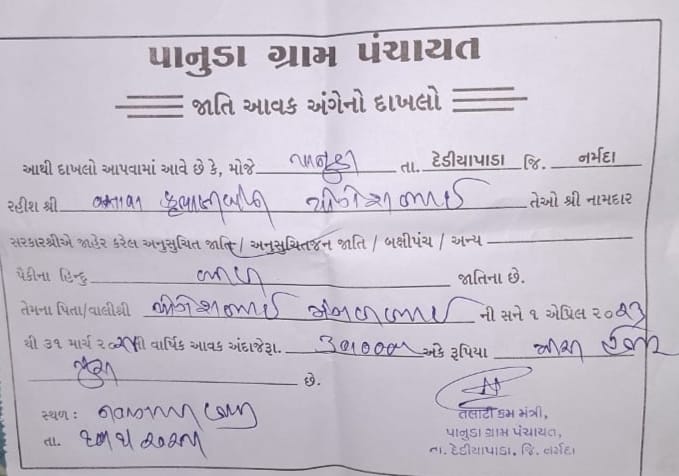 પાનુડા ગ્રામ પંચાયત
જાતિ આવક અંગેનો દાખલો
આથી દાખલો આપવામાં આવે છે કે, મોજે પાનુડા તા. દેડીયાપાડા જિ. નર્મદા
રહીશ શ્રી વસાવા યોગેશભાઈ તેઓ શ્રી નામદાર
સરકારશ્રીએ જાહેર કરેલ અનુસુચિત જાતિ / અનુસુચિતજન જાતિ / બક્ષીપંચ / અન્ય
પૈકીના હિન્દુ જાતિના છે.
તેમના પિતા/વાલીશ્રી યોગેશભાઈ ની સને ૧ એપ્રિલ ૨૦૨૩
થી ૩૧ માર્ચ ૨૦ ની વાર્ષિક આવક અંદાજેરૂા. અંકે રૂપિયા
પુરા છે.
સ્થળ :
તા.
તલાટી કમ મંત્રી,
પાનુડા ગ્રામ પંચાયત,
તા. દેડીયાપાડા, જિ. નર્મદા